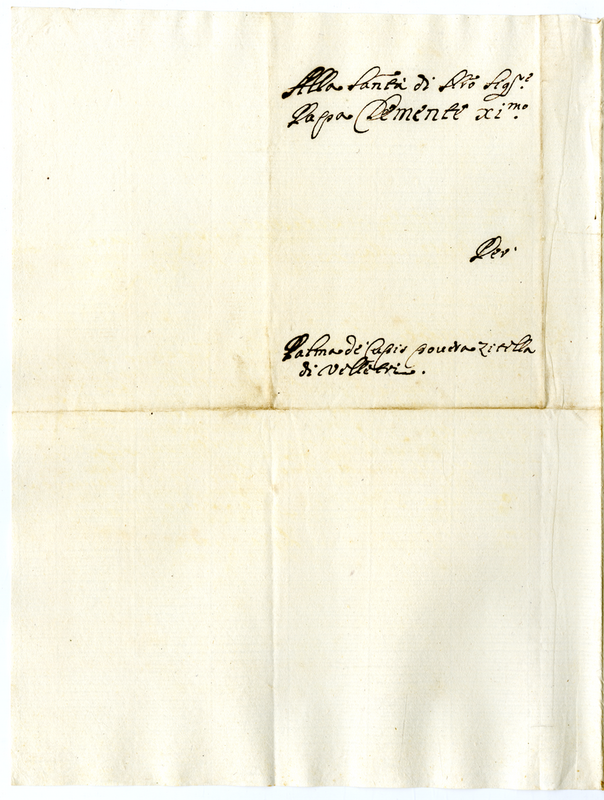 Alla Santà di Nro Sigre
Papa Clemente ximo
Per
Palma de Capis povera zitella
di Velletri.